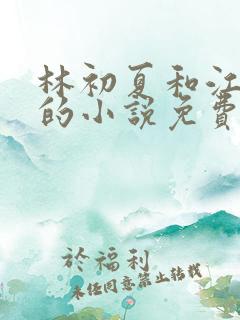 林初夏和江
的小说免費
於福利
未任同意禁止转载